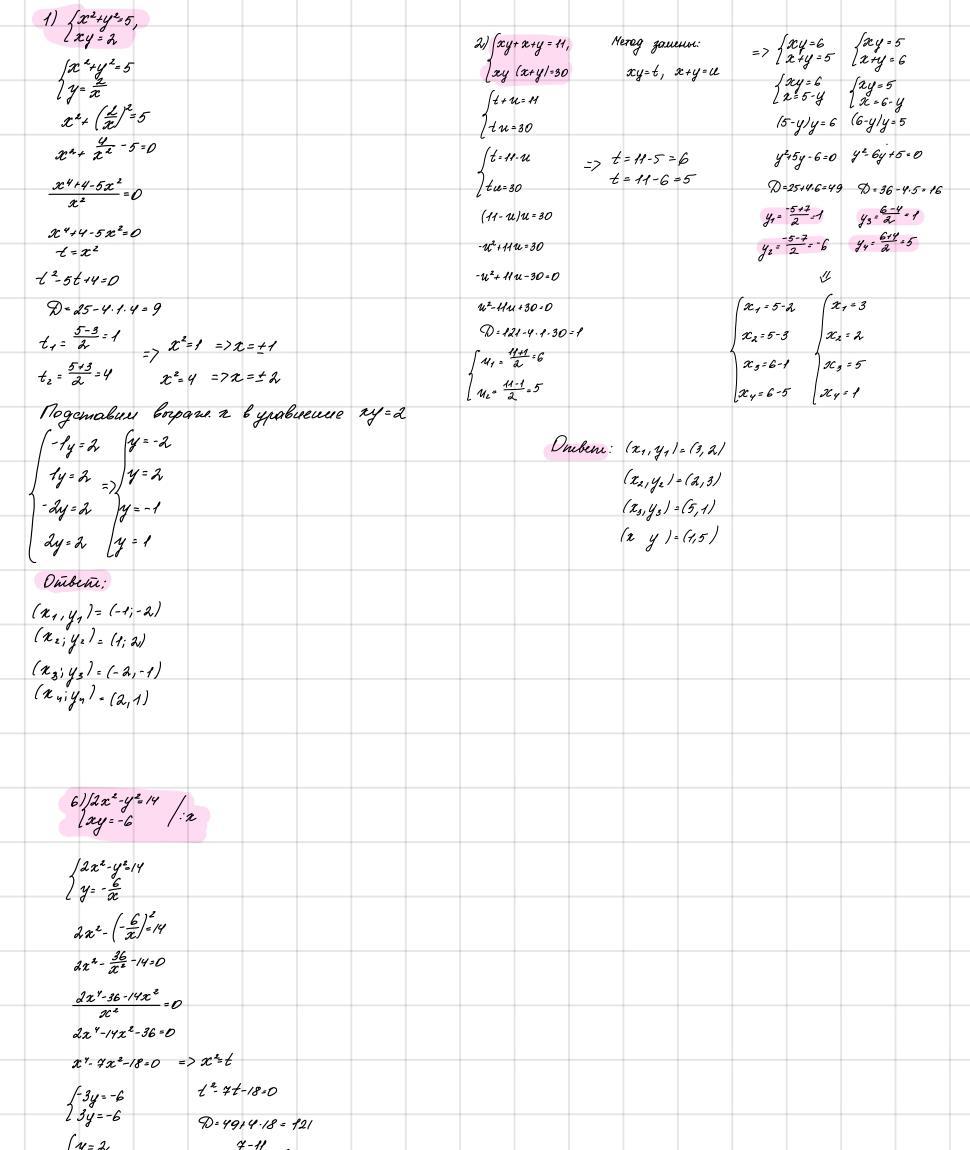 1) {x²+y²=5,
{xy=2
{x²+y²=5
{y=2/x
x²+(2/x)²=5
x²+4/x²-5=0
(x⁴+4-5x²)/x²=0
x⁴+4-5x²=0
t=x²
t²-5t+4=0
D=25-4·1·4=9
t₁=(5-3)/2=1 => x²=1 => x=±1
t₂=(5+3)/2=4 x²=4 => x=±2
Подставим выраж x в уравнение xy=2
{-1y=2 {y=-2
1y=2 => y=2
-2y=2 y=-1
2y=2 y=1
Ответ:
(x₁,y₁)=(-1;-2)
(x₂;y₂)=(1;2)
(x₃;y₃)=(-2,-1)
(x₄;y₄)=(2,1)
2) {xy+x+y=11,
{xy(x+y)=30
Метод замены:
xy=t, x+y=u
{t+u=11
{tu=30
{t=11-u
{tu=30
=> t=11-5=6
t=11-6=5
(11-u)u=30
-u²+11u=30
-u²+11u-30=0
u²-11u+30=0
D=121-4·1·30=1
{u₁=(11+1)/2=6
{u₂=(11-1)/2=5
=> {xy=6 {xy=5
{x+y=5 {x+y=6
{xy=6 {xy=5
{x=5-y {x=6-y
(5-y)y=6 (6-y)y=5
y²+5y-6=0 y²-6y+5=0
D=25+4·6=49 D=36-4·5=16
y₁=(-5+7)/2=1 y₃=(6-4)/2=1
y₂=(-5-7)/2=-6 y₄=(6+4)/2=5
⇓
{x₁=5-2 {x₁=3
x₂=5-3 x₂=2
x₃=6-1 x₃=5
x₄=6-5 x₄=1
Ответ: (x₁,y₁)=(3,2)
(x₂,y₂)=(2,3)
(x₃,y₃)=(5,1)
(x y )=(1,5)
6) {2x²-y²=14
{xy=-6 /:x
{2x²-y²=14
{y=-6/x
2x²-(-6/x)²=14
2x²-36/x²-14=0
(2x⁴-36-14x²)/x²=0
2x⁴-14x²-36=0
x⁴-7x²-18=0 => x²=t
{-3y=-6
{3y=-6
{y=2
t²-7t-18=0
D=49+4·18=121
7-11